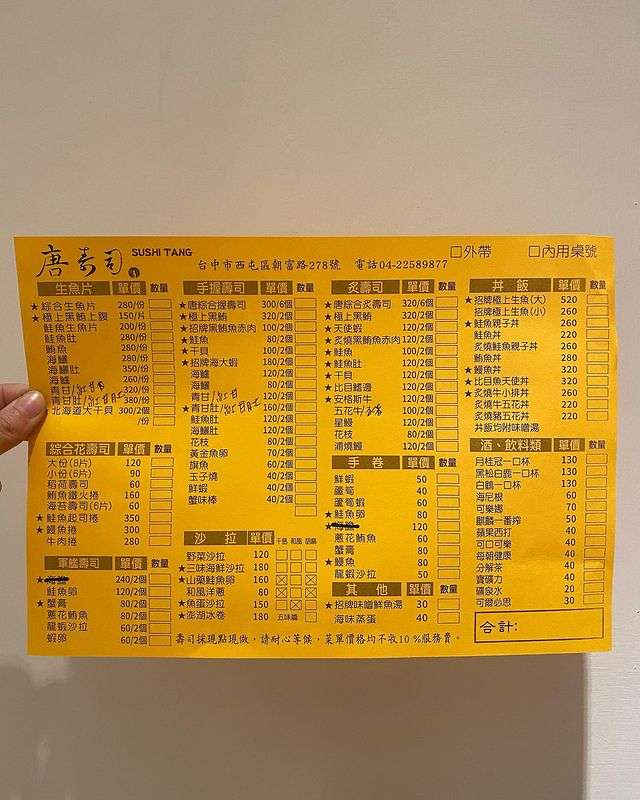 唐壽司 SUSHI TANG
台中市西屯區朝富路278號 電話04-22589877
□外帶 □內用桌號
生魚片 單價 數量
★綜合生魚片 280/份
★極上黑鮪上腹 150/片
鮭魚生魚片 200/份
鮭魚肚 280/份
鮪魚 280/份
海鱺 280/份
海鱺肚 350/份
海鱸 260/份
青甘/紅甘 320/份
青甘肚/紅甘肚 380/份
★北海道大干貝 300/2個
/份
綜合花壽司 單價 數量
大份(8片) 120
小份(6片) 90
稻荷壽司 60
鮪魚鐵火捲 160
海苔壽司(6片) 60
★鮭魚起司捲 350
★鰻魚捲 300
牛肉捲 280
軍艦壽司 單價 數量
★ 240/2個
鮭魚卵 120/2個
★蟹膏 80/2個
蔥花鮪魚 80/2個
龍蝦沙拉 60/2個
蝦卵 60/2個
手握壽司 單價 數量
★唐綜合握壽司 300/6個
★極上黑鮪 320/2個
★招牌黑鮪魚赤肉 100/2個
★鮭魚 80/2個
★干貝 100/2個
★招牌海大蝦 180/2個
海鱺 80/2個
海鱸 80/2個
青甘/紅甘 120/2個
★青甘肚/紅甘肚 160/2個
鮭魚肚 120/2個
海鱺肚 120/2個
花枝 80/2個
黃金魚卵 70/2個
旗魚 60/2個
玉子燒 40/2個
鮮蝦 40/2個
蟹味棒 40/2個
沙拉 單價 千島 和風 胡麻
野菜沙拉 120
★三味海鮮沙拉 180
★山藥鮭魚卵 160
和風洋蔥 80
★魚蛋沙拉 150
★澎湖冰卷 180 五味醬
炙壽司 單價 數量
★唐綜合炙壽司 320/6個
★極上黑鮪 320/2個
★天使蝦 120/2個
★炙燒黑鮪魚赤肉 120/2個
★鮭魚 100/2個
★鮭魚肚 120/2個
★干貝 120/2個
★比目鰭邊 120/2個
★安格斯牛 120/2個
五花牛 100/2個
星鰻 100/2個
花枝 80/2個
浦燒鰻 120/2個
手卷 單價 數量
鮮蝦 50
蘆筍 40
蘆筍蝦 60
★鮭魚卵 80
★ 120
蔥花鮪魚 60
蟹膏 80
★鰻魚 80
龍蝦沙拉 50
其他 單價 數量
★招牌味噌鮮魚湯 30
海味蒸蛋 40
丼飯 單價 數量
★招牌極上生魚(大) 520
招牌極上生魚(小) 260
★鮭魚親子丼 260
鮭魚丼 220
炙燒鮭魚親子丼 260
鮪魚丼 280
★鰻魚丼 320
★比目魚天使丼 320
★炙燒牛小排丼 260
炙燒牛五花丼 220
炙燒豬五花丼 220
丼飯均附味噌湯
酒、飲料類 單價 數量
月桂冠一口杯 130
黑松白鹿一口杯 130
白鶴一口杯 130
海尼根 60
可樂娜 70
麒麟一番搾 50
蘋果西打 40
可口可樂 40
每朝健康 40
分解茶 40
寶礦力 40
礦泉水 20
可爾必思 30
合計:
壽司採現點現做,請耐心等候,菜單價格均不收10%服務費。